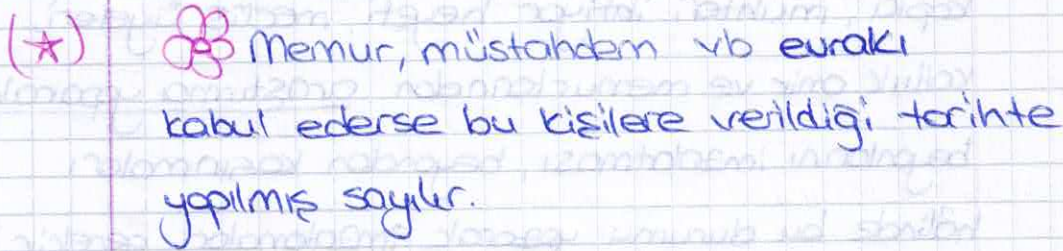 (☆) Memur, müstahdem vb evrakı
kabul ederse bu kişilere verildiği tarihte
yapılmış sayılır.